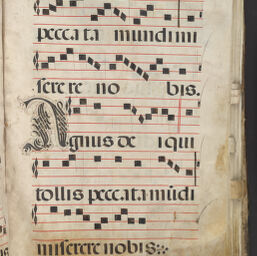 pecca ta mundi mi
serere no bis.
Agnus de i qui
tollis peccata mūdi
miserere nobis